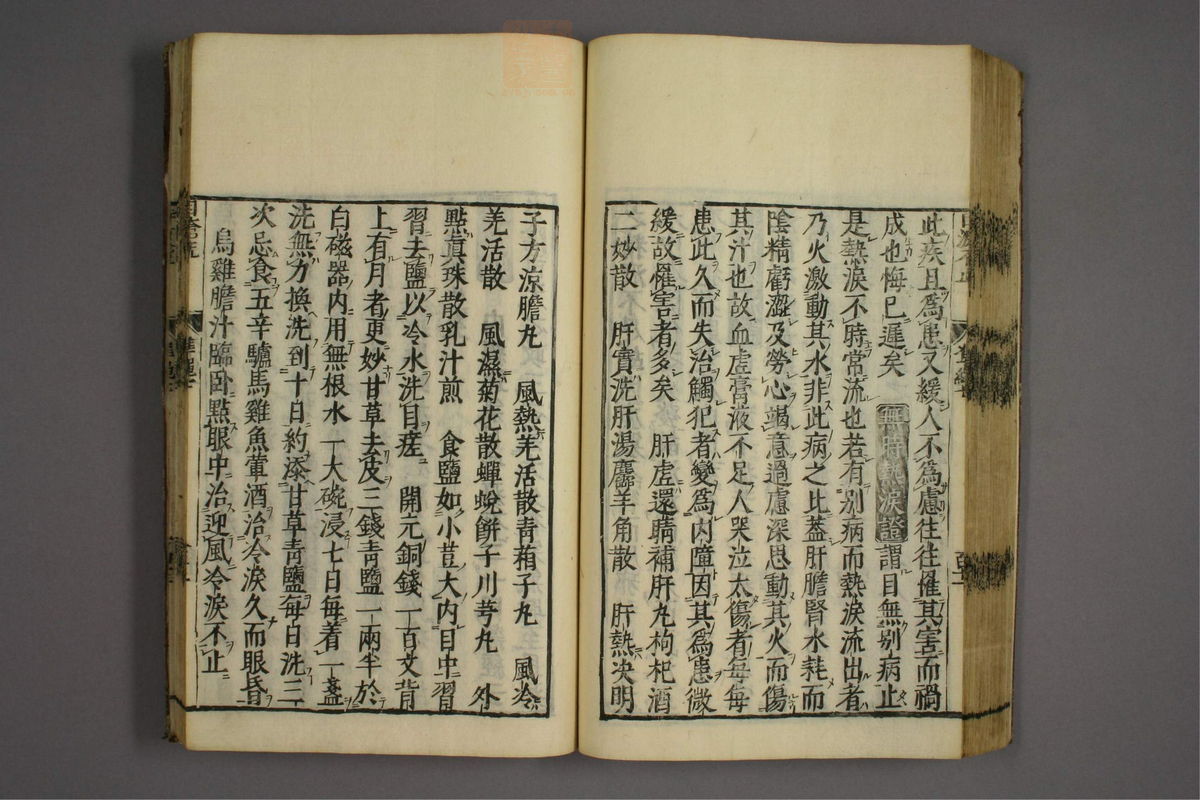 此疾且爲患又緩人不爲慮往往罹其害而禍
成也悔已遲矣 無時熱淚證 謂目無别病止
是熱淚不時常流也若有别病而熱淚流出者
乃火激動其水非此病之比蓋肝膽腎水耗而
陰精虧澁及勞心竭意過慮深思動其火而傷
其汁也故血虚膏液不足人哭泣太傷者每每
患此久而失治觸犯者變爲内障因其爲患微
緩故罹害者多矣 肝虚還睛補肝丸枸杞酒
二妙散 肝實洗肝湯麢羊角散 肝熱决明
子方涼膽丸 風熱羌活散青葙子丸 風冷
羌活散 風濕菊花散蟬蛻餅子川芎丸 外
點真珠散乳汁煎 食鹽如小荳大内目中習
習去鹽以冷水洗目瘥 開元銅錢一百文背
上有月者更妙甘草去皮三錢青鹽一兩半於
白磁器内用無根水一大碗浸七日每着一盞
洗無力換洗到十日約添甘草青鹽每日洗三
次忌食五辛驢馬雞魚葷酒治冷淚久而眼昏
烏雞膽汁臨卧點眼中治迎風冷淚不止